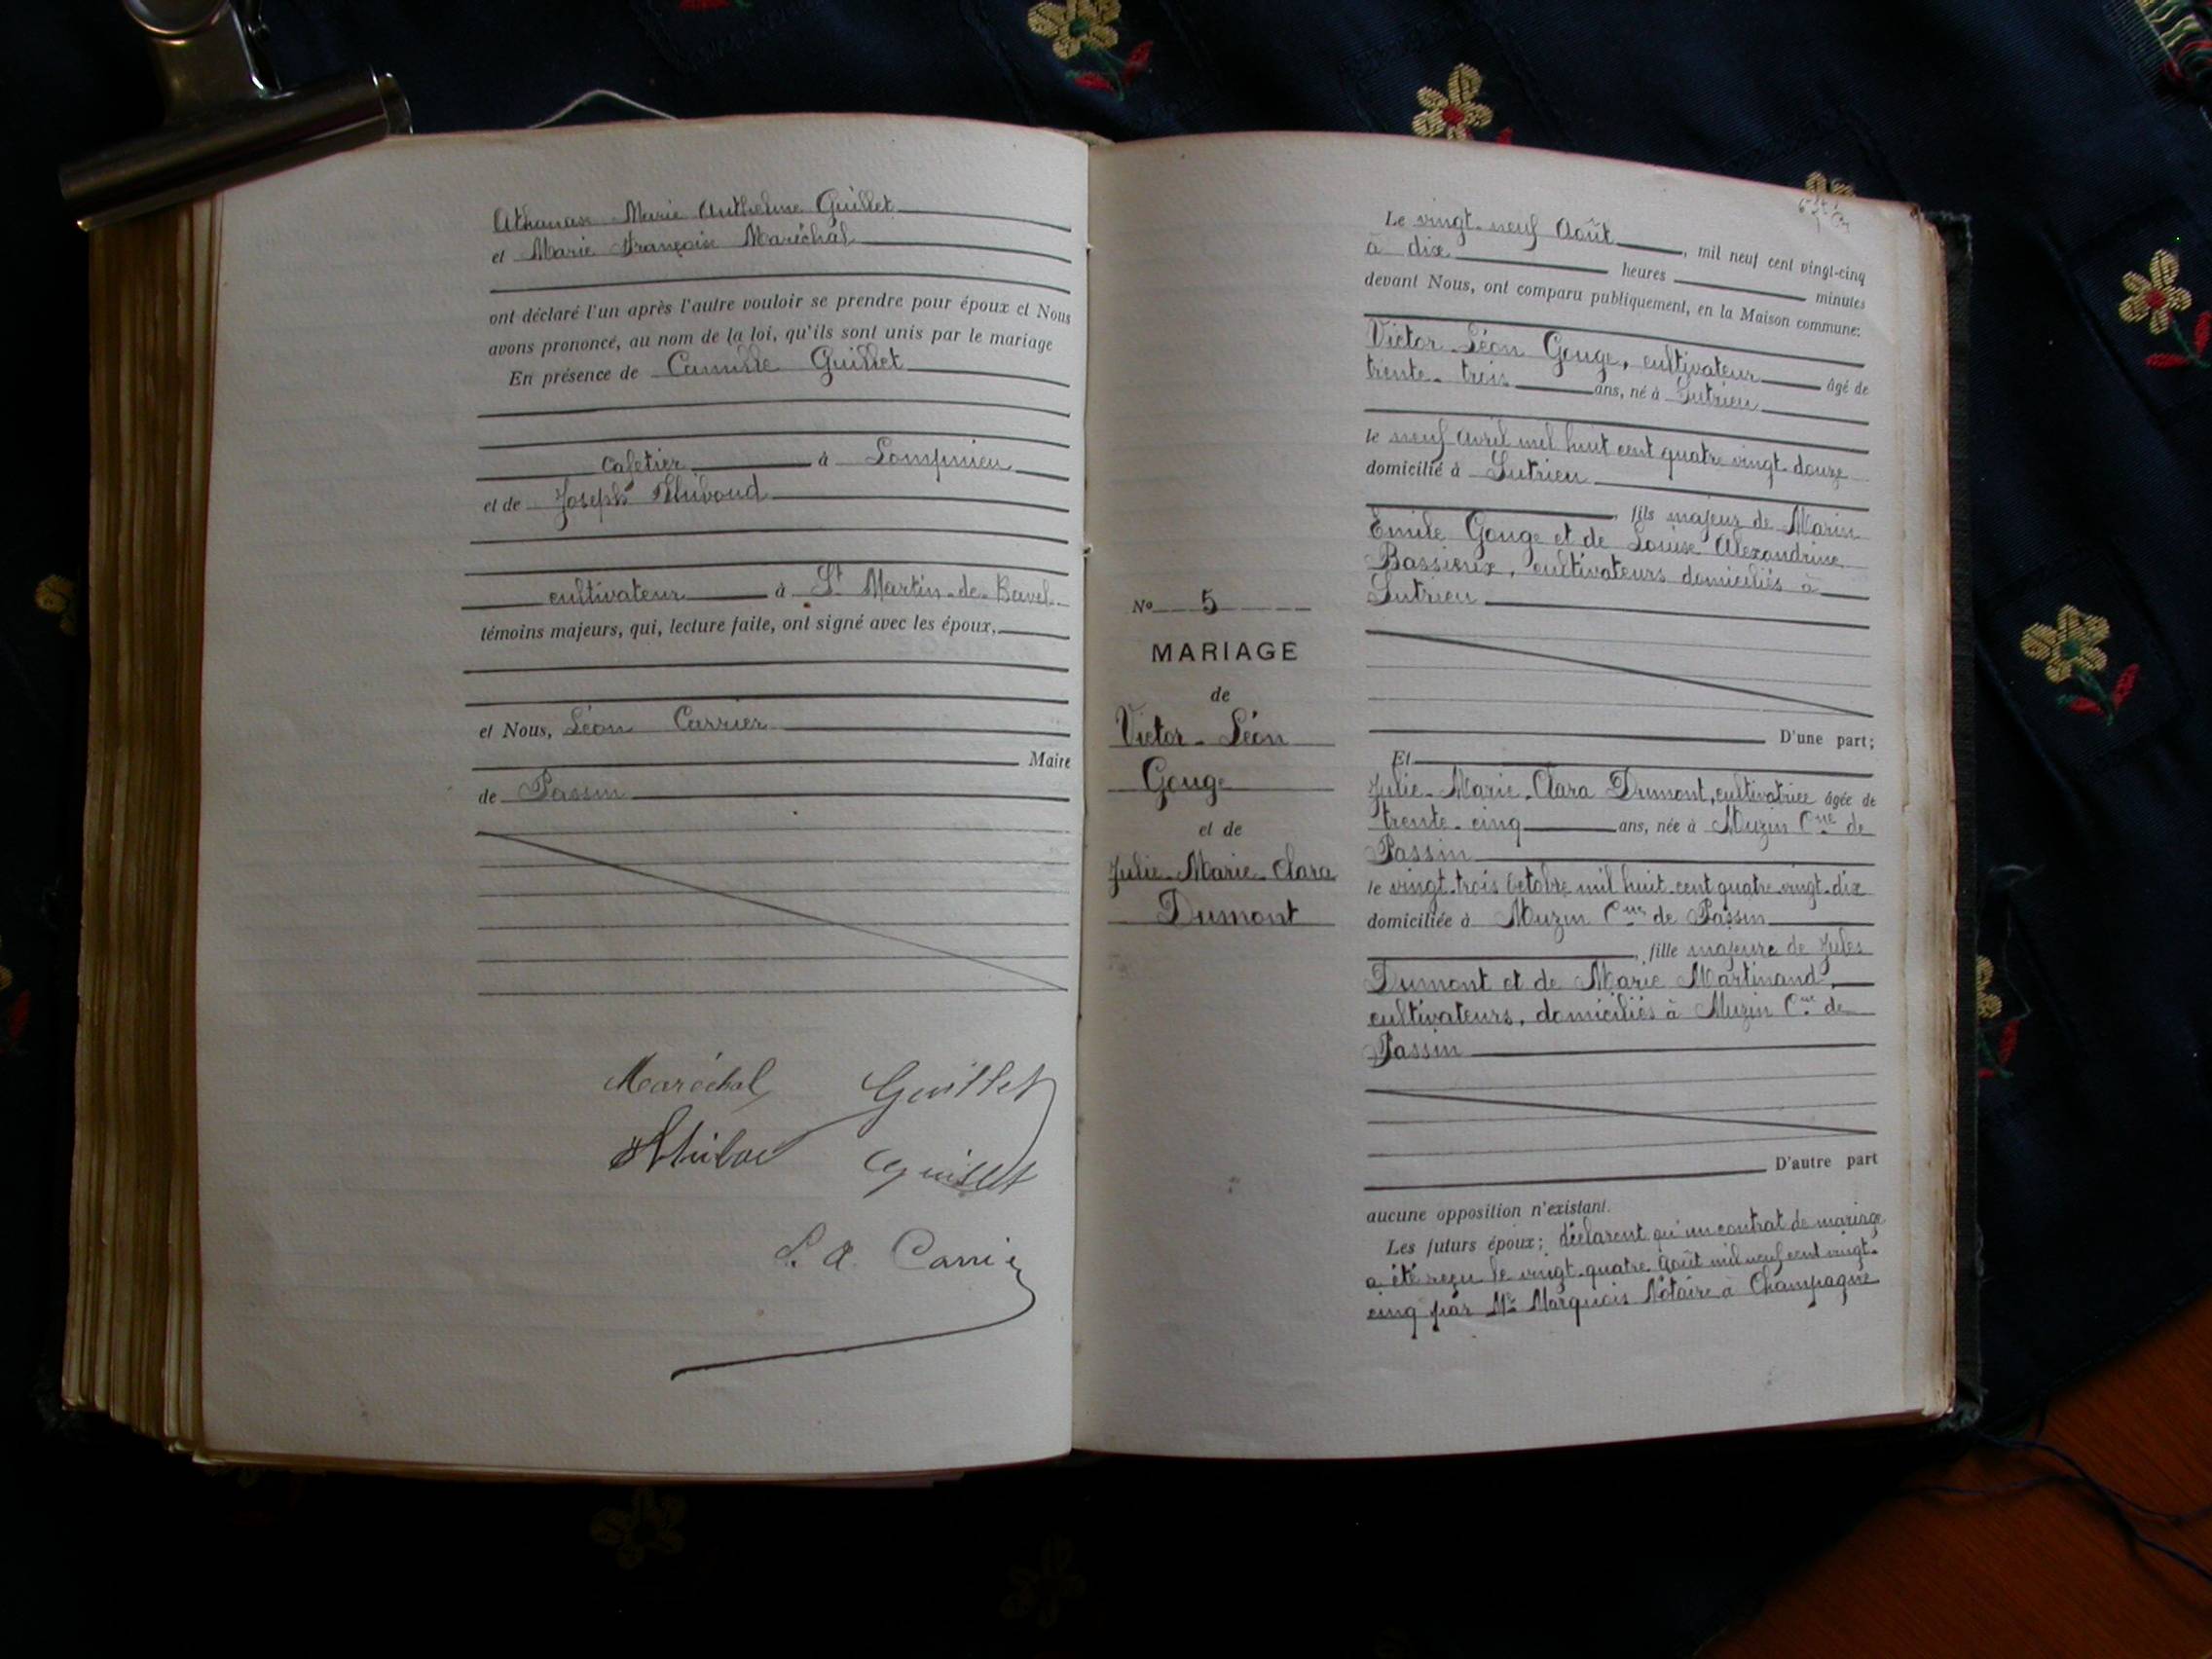 Athanase Marie Anthelme Guillet
et Marie Françoise Maréchal
ont déclaré l'un après l'autre vouloir se prendre pour époux et Nous
avons prononcé, au nom de la loi, qu'ils sont unis par le mariage
En présence de Camille Guillet
cafetier à Lompnieu
et de Joseph Thiboud
cultivateur à St Martin-de-Bavel
témoins majeurs, qui, lecture faite, ont signé avec les époux,
et Nous, Léon Carrier
Maire
de Passin
Maréchal Guillet
Guillet
L. A. Carrier
Le vingt-neuf Août, mil neuf cent vingt-cinq
à dix heures minutes
devant Nous, ont comparu publiquement, en la Maison commune:
Victor Léon Gouge, cultivateur âgé de
trente-trois ans, né à Sutrieu
le neuf Avril mil huit cent quatre vingt-douze
domicilié à Sutrieu
, fils majeur de Marin
Emile Gouge et de Louise Alexandrine
Bassieux, cultivateurs domiciliés à
Sutrieu
No 5
MARIAGE
de
Victor-Léon
Gouge
et de
Julie-Marie-Clara
Dumont
D'une part;
Et
Julie-Marie-Clara Dumont, cultivatrice âgée de
trente-cinq ans, née à Muzin Cne de
Passin
le vingt-trois Octobre mil huit-cent quatre-vingt-dix
domiciliée à Muzin Cne de Passin
, fille majeure de Jules
Dumont et de Marie Martinand,
cultivateurs, domiciliés à Muzin Cne de
Passin
D'autre part
aucune opposition n'existant.
Les futurs époux; déclarent qu'un contrat de mariage
a été reçu le vingt-quatre Août mil neuf cent vingt-
cinq par Me Marquois Notaire à Champagne